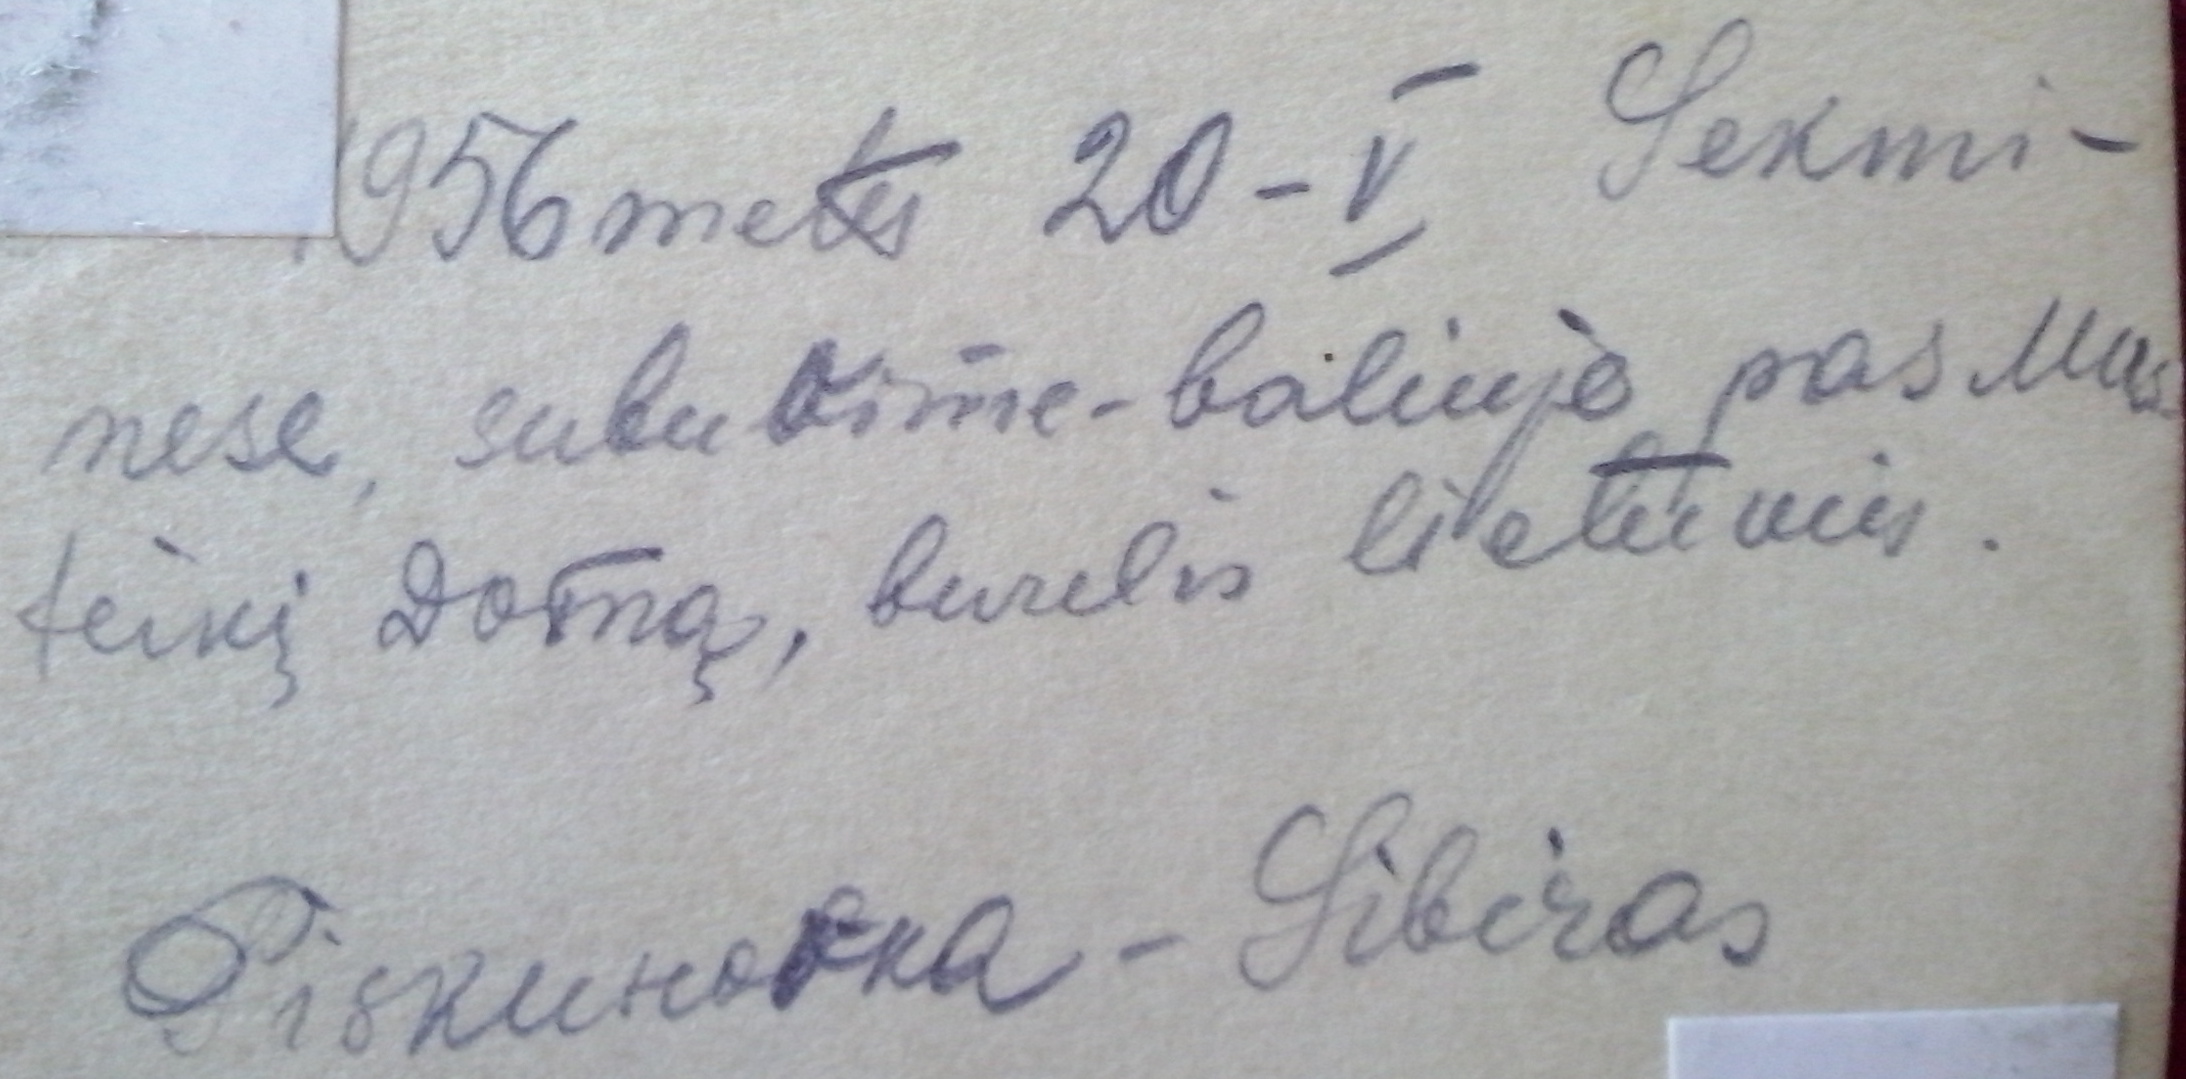 1956 metų 20-V Sekmi-
nėse, subuvime-baliuje pas Mas-
teikį Domą, burelis lietuvių.
Piskunovka - Sibiras